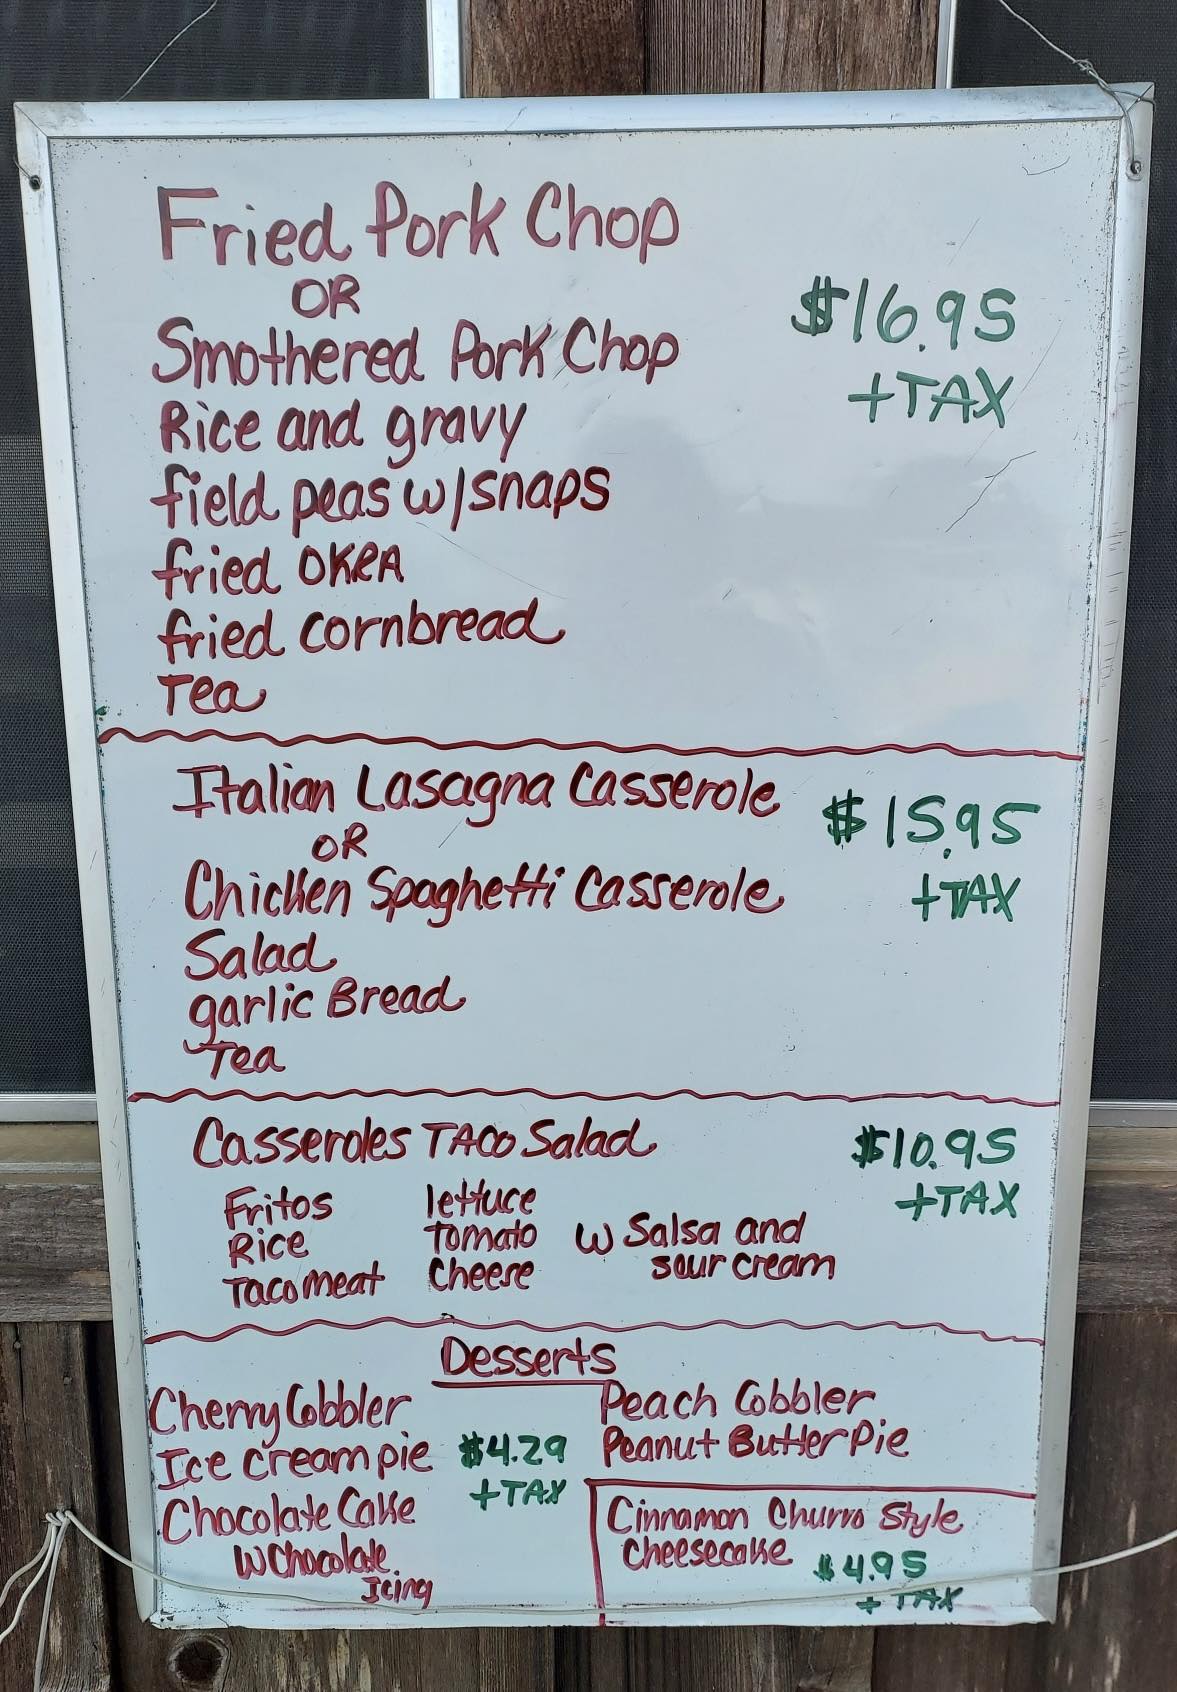 Fried Pork Chop
OR
Smothered Pork Chop
$16.95
+TAX
Rice and gravy
field peas w/snaps
fried OKRA
fried cornbread
Tea
Italian Lasagna Casserole
OR
Chicken Spaghetti Casserole
$15.95
+TAX
Salad
garlic Bread
Tea
Casseroles TACO Salad
$10.95
+TAX
Fritos
Rice
Taco Meat
lettuce
Tomato
Cheese
w Salsa and
sour cream
Desserts
Cherry Cobbler
Ice cream pie
Chocolate Cake
W Chocolate
Icing
$4.29
+TAX
Peach Cobbler
Peanut Butter Pie
Cinnamon Churro Style
Cheesecake
$4.95
+ TAX